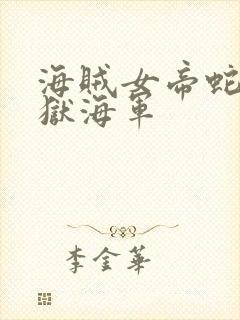 海賊女帝蛇
獄海軍
李金華